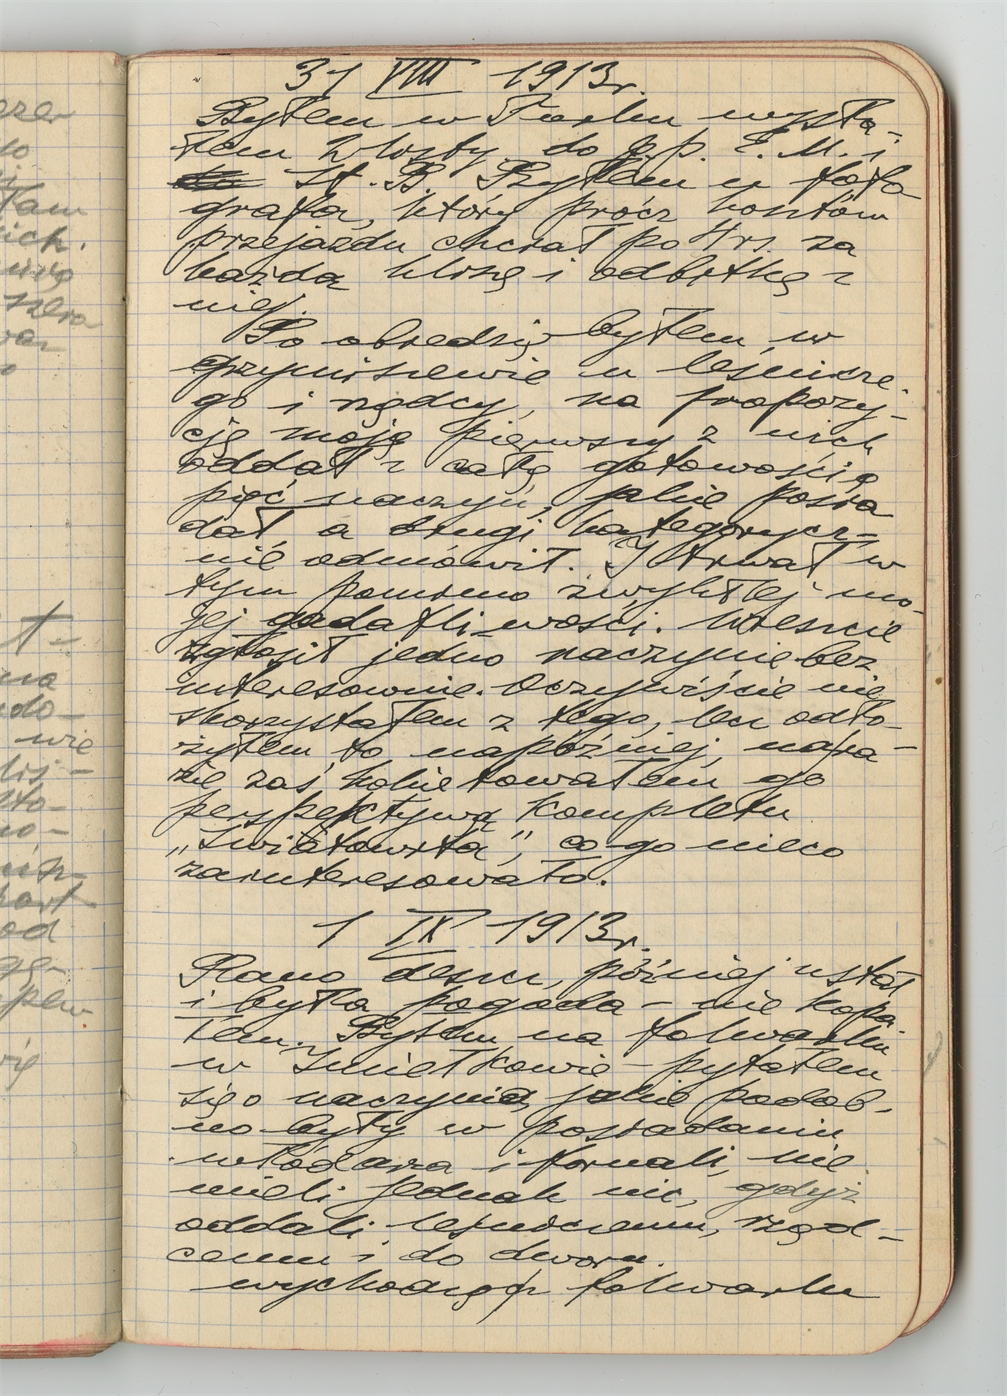 31 VIII 1913r.
Byłem w Turku wysła-
łem listy do p.p. E. M. i
St. B. Byłem u foto
grafa, który prócz kosztów
przejazdu chciał po 4 rs. za
każdą kliszę i odbitkę z
niej.
Po obiedzie byłem w
Grzymiszewie u leśnicze-
go i rządcy, na propozy-
cję moję pierwszy z nich
oddał z całą gotowością
pięć naczyń, jakie posia
dał, a drugi kategorycz-
nie odmówił. I trwał w
tym pomimo zwykłej mo-
jej gadatliwości. Wreszcie
zgłosił jedno naczynie bez
interesownie. Oczywiście nie
skorzystałem z tego, lecz odło-
żyłem to napóźniej, nara-
zie zaś kokietowałem go
perspektywą kompletu
„Światowita”, co go nieco
zainteresowało.
1 IX 1913r.
Rano deszcz, później ustał
i była pogoda – nie kopa-
łem. Byłem na folwarku
w Smiełkowie – pytałem
się o naczynia, jakie podob-
no były w posiadaniu
włódarza i fornali, nie
mieli jednak nic, gdyż
oddali leśniczemu, rząd-
cemu i do dworu.
wychodząc z folwarku
ezer
so
tam
kich.
szera
wa-
t-
na
do-
wie
lis-
sto-
no-
part-
od
gę-